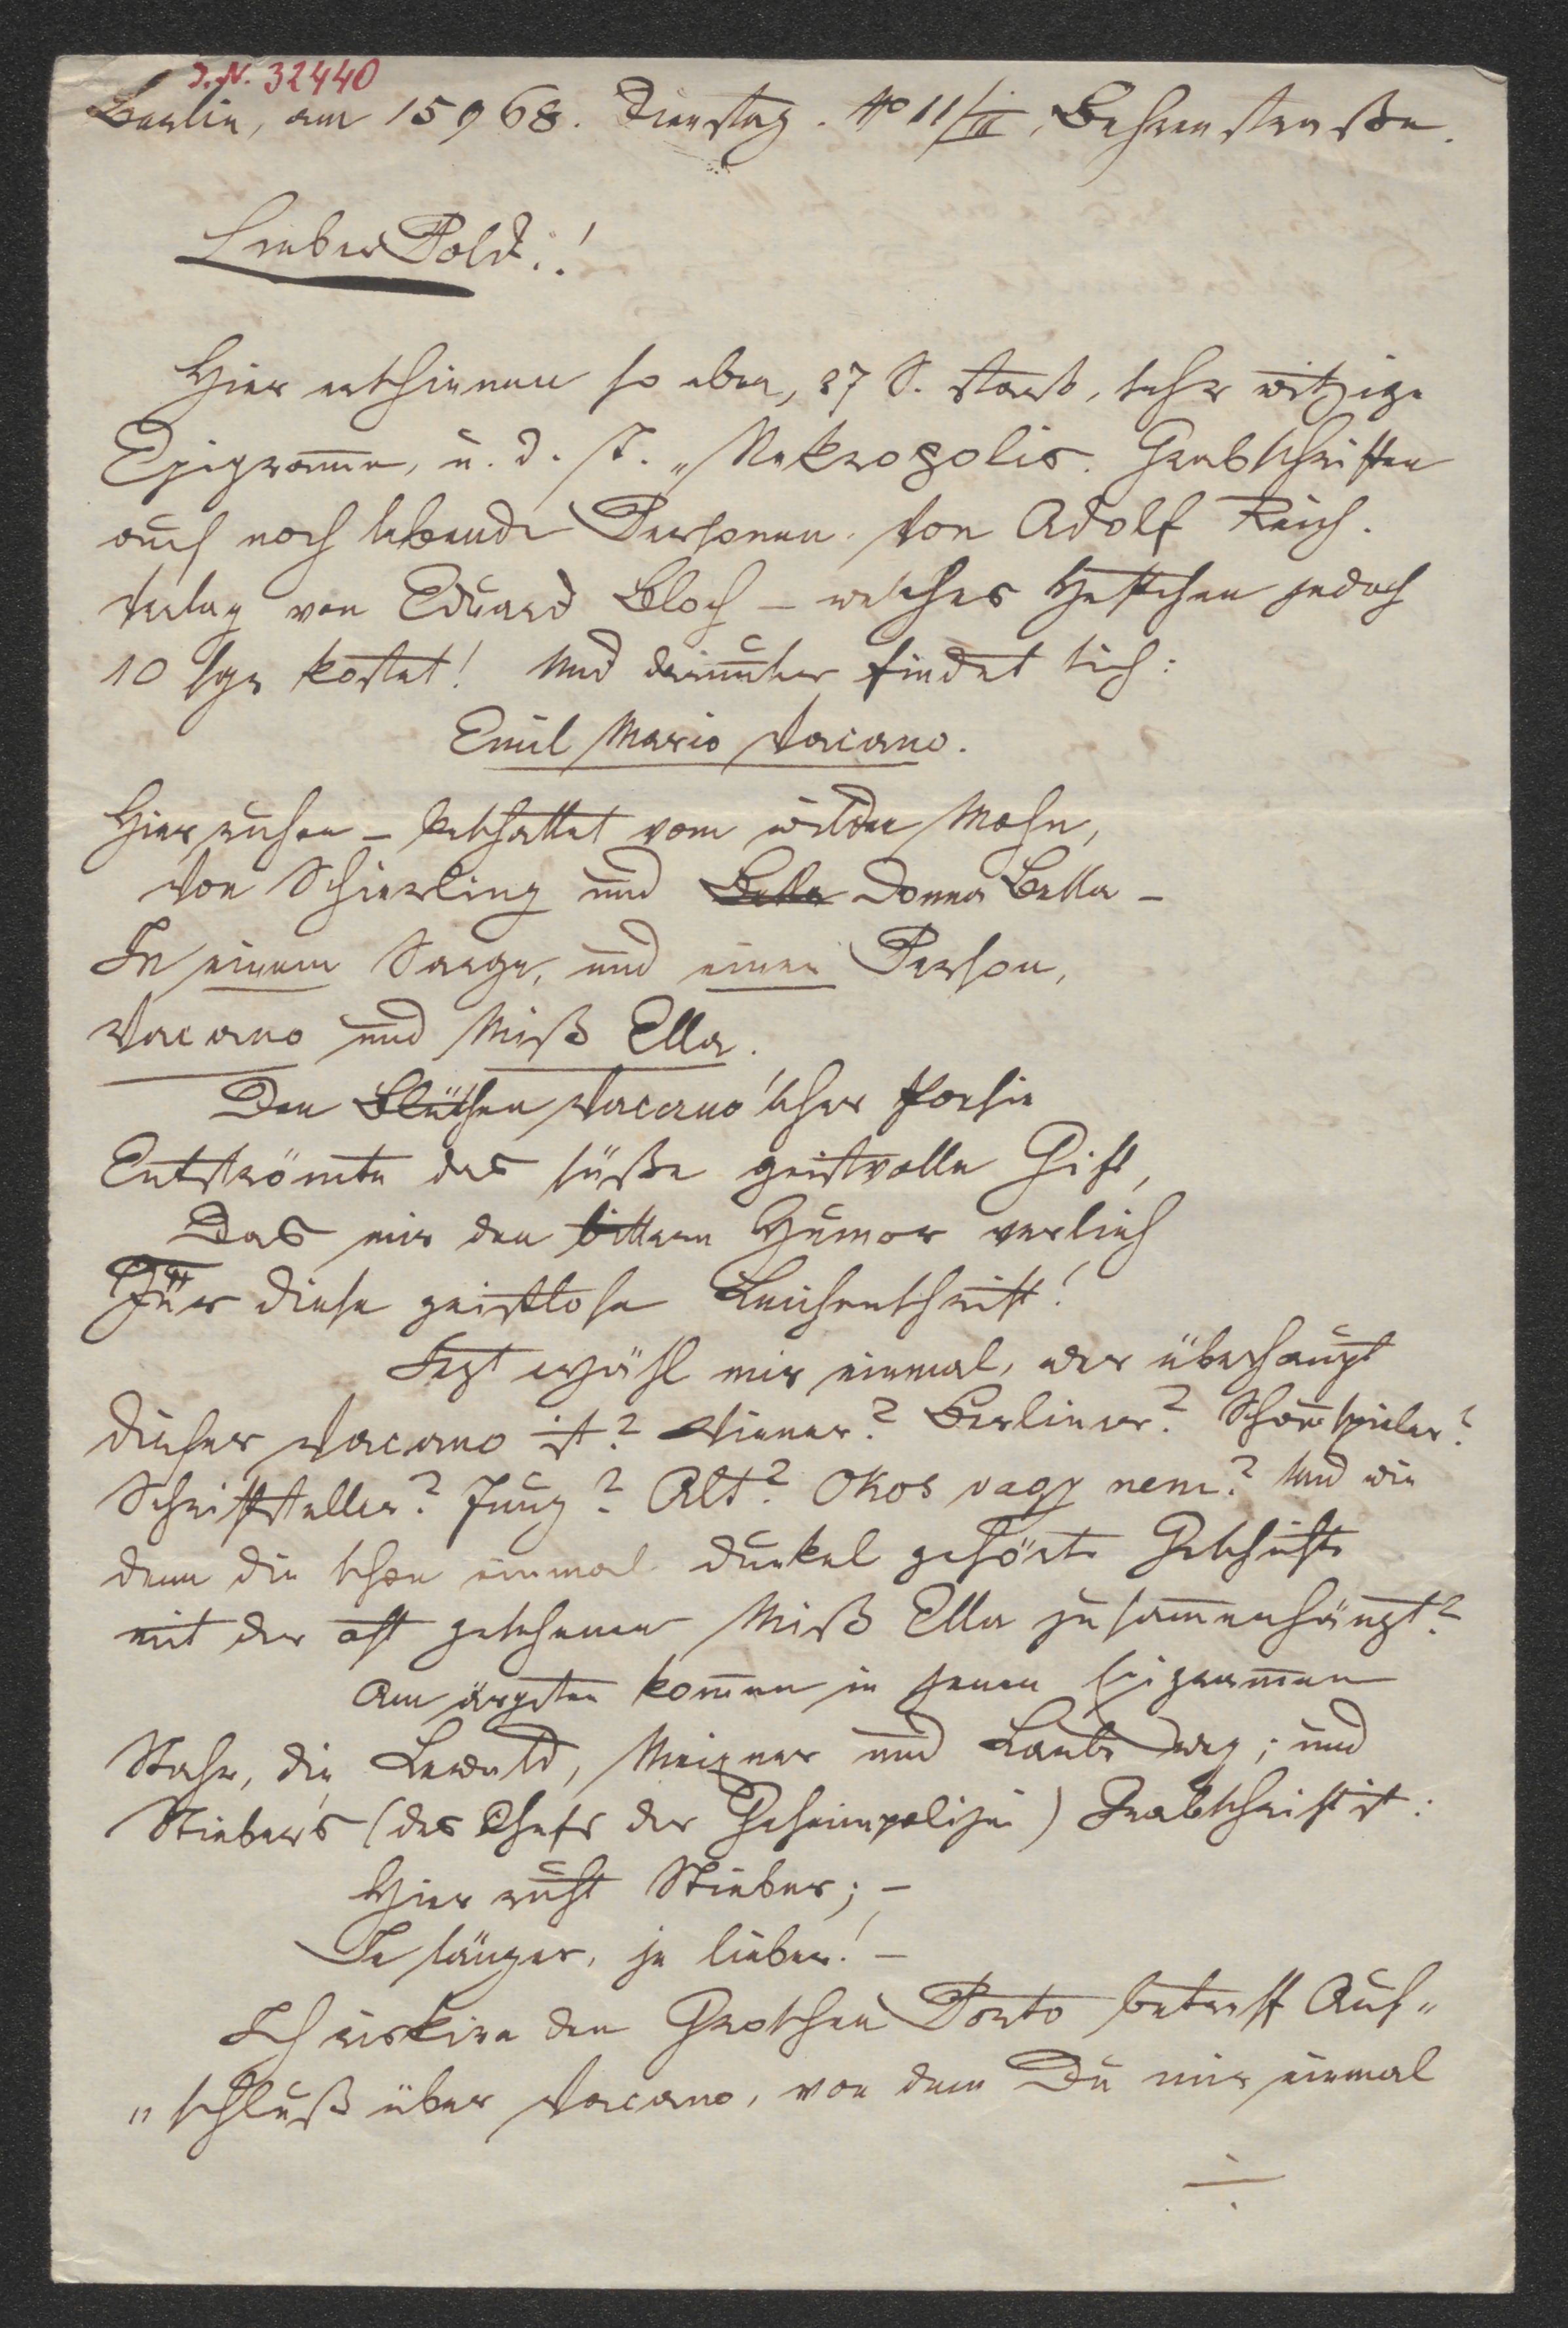 I.N. 32440
Berlin, am 15 9 68. Dienstag. No 11/II, Behrenstraße.
Lieber Poldi!
Hier erschienen so eben, 27 S. stark, sehr witzige
Epigram̄e, u. d. T. „Nekropolis. Grabschriften
auch noch lebender Personen. Von Adolf Reich.
Verlag von Eduard Bloch – welches Heftchen jedoch
10 Sgr kostet! Und darunter findet sich:
Emil Mario Vacano.
Hier ruhen – beschattet vom wilden Mohn,
Von Schierling und Bella Donna Bella –
In einem Sarge, und einer Person,
Vacano und Miß Ella.
Den Blüthen Vacano'scher Poesie
Entströmte das süße geistvolle Gift,
Das mir den bittern Humor verlieh
Für diese geistlose Leichenschrift!
Jezt erzähl mir einmal, wer überhaupt
dieser Vacano ist? Wiener? Berliner? Schauspieler?
Schriftsteller? Jung? Alt? Okos vagy nem? Und wie
denn die schon einmal dunkel gehörte Geschichte
mit der oft gesehenen Miß Ella zusam̄enhängt?
Am ärgsten kom̄en in jenen Epigram̄en
Stahr, die Lewald, Meißner und Laube weg; und
Stieber's (des Chefs der Geheimpolizei) Grabschrift ist:
Hier ruht Stieber; –
Je länger, je lieber! –
Ich riskire den Groschen Porto betreff Auf„
„schluß über Vacano, von dem Du mir einmal